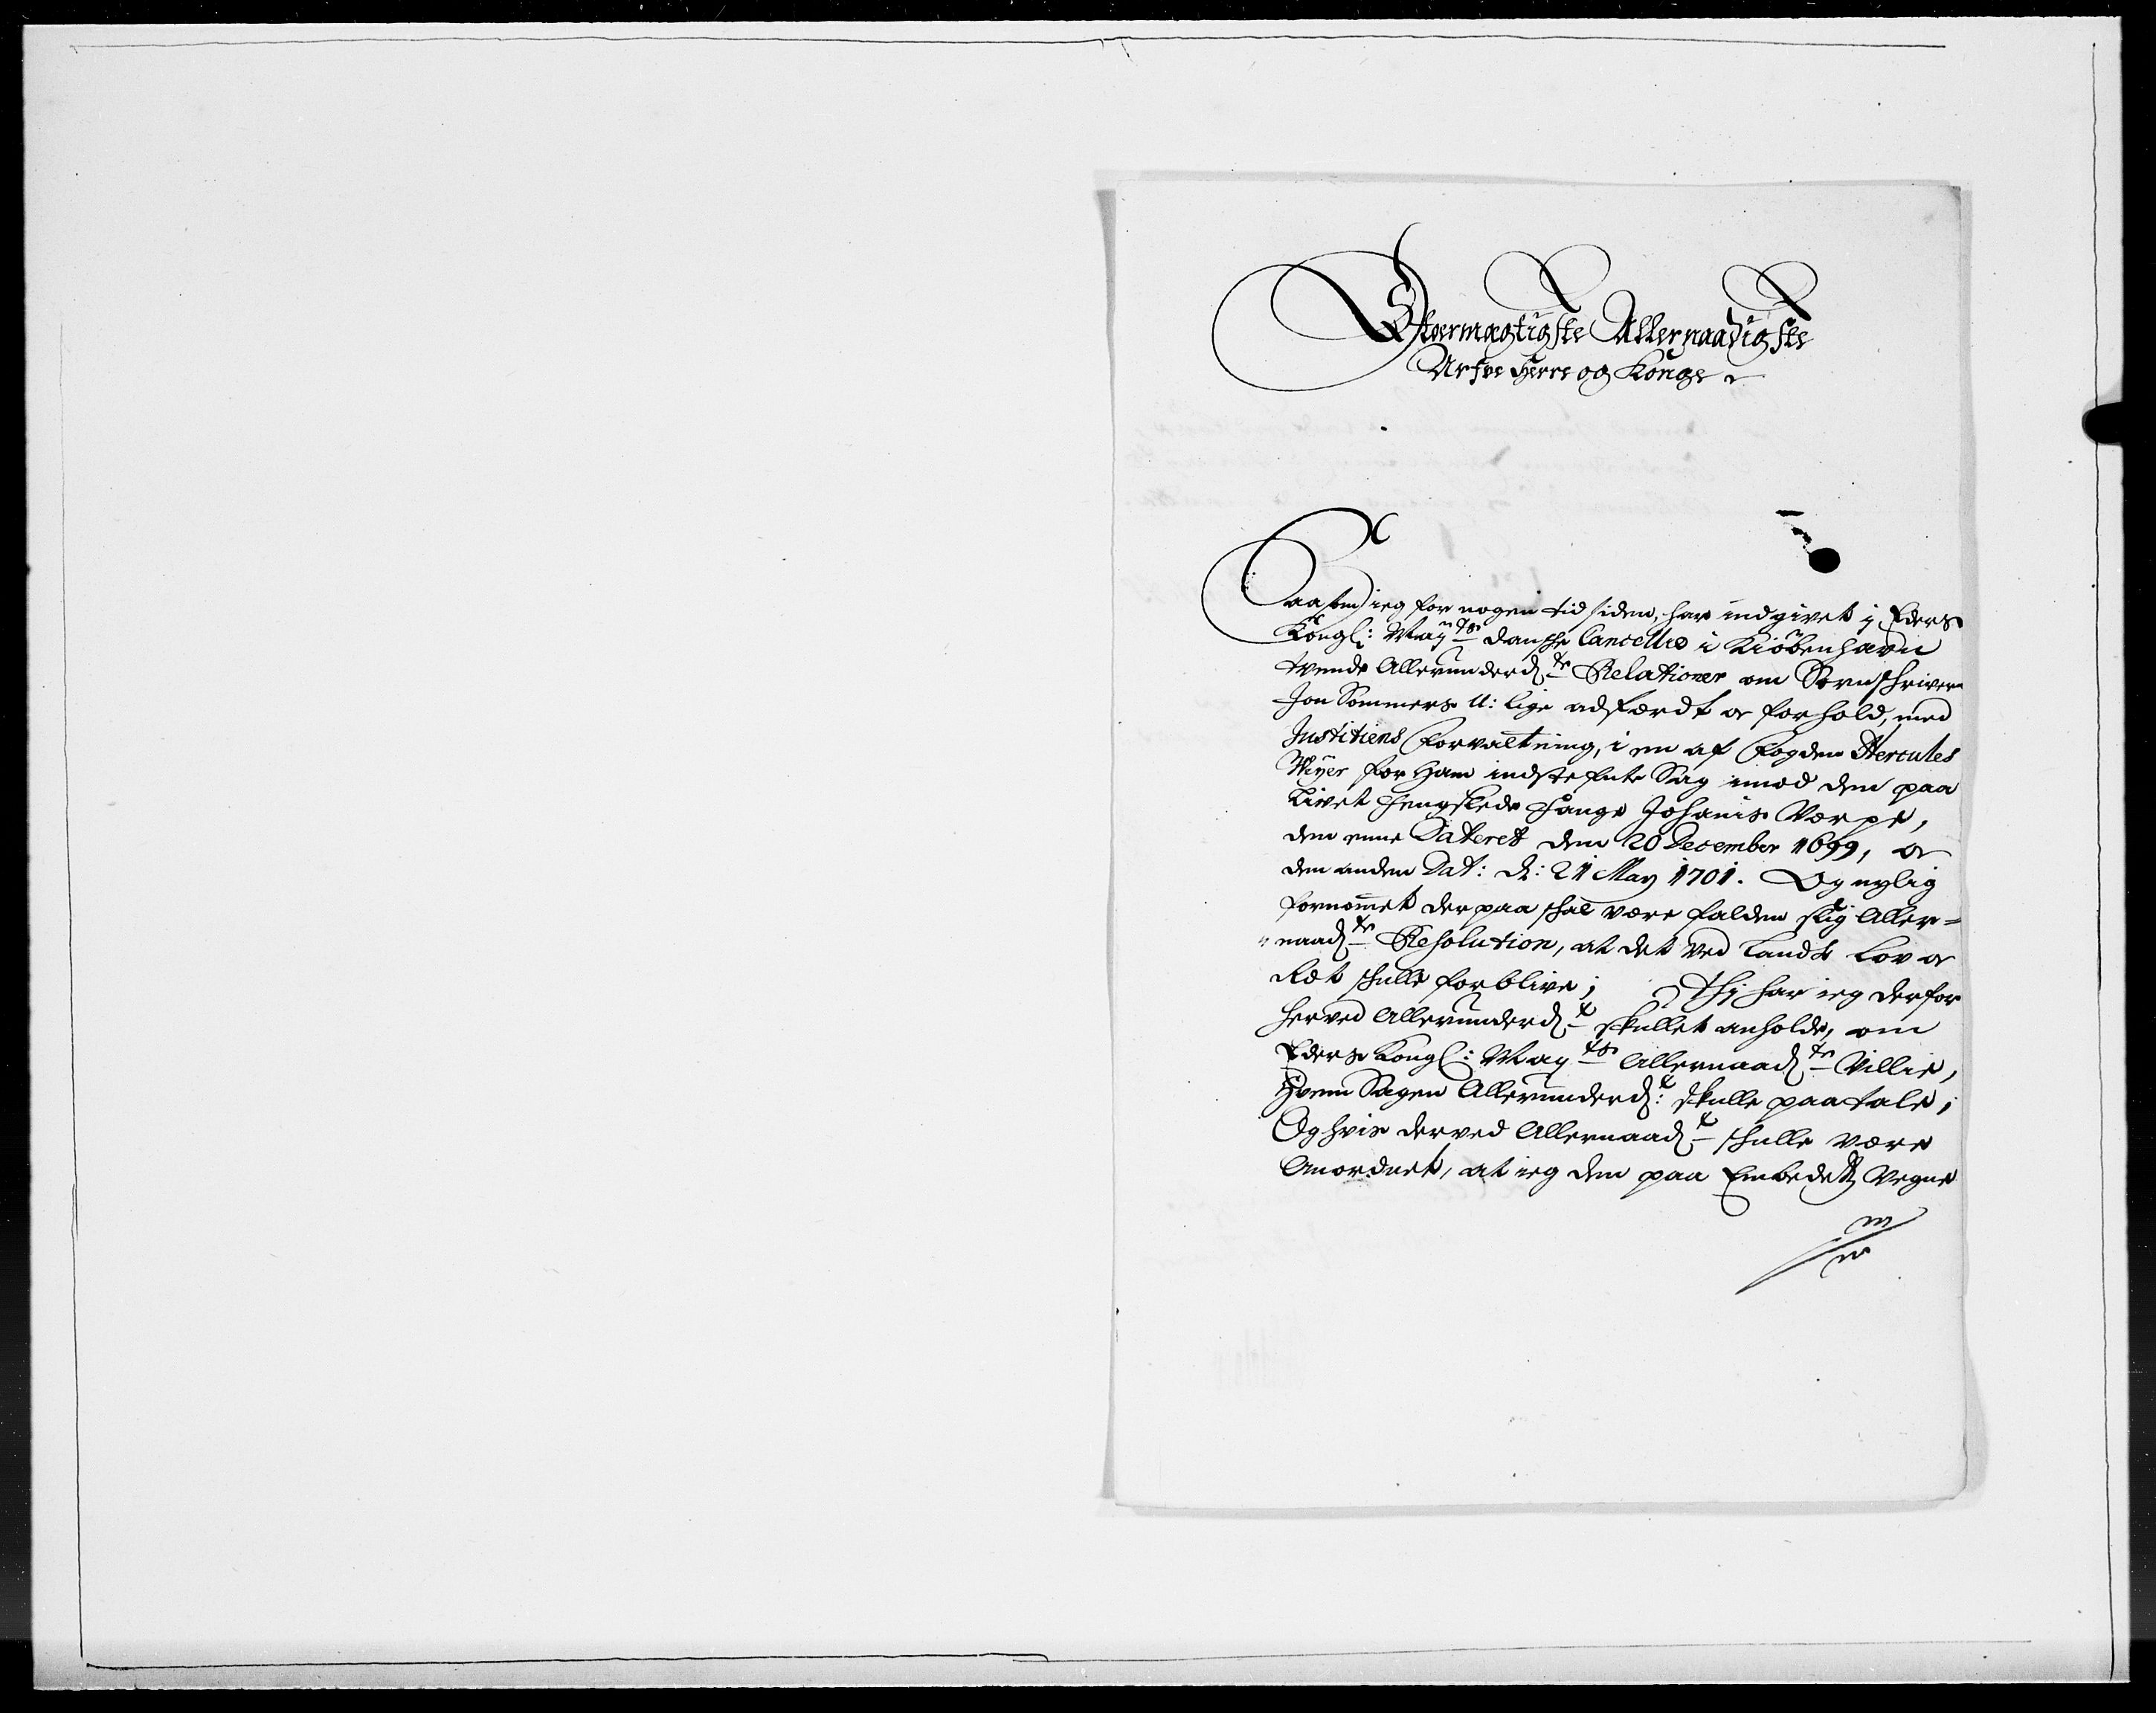 Stoermægtigste Allernaadigste
Arfve Herre og Konge
Saasom ieg for nogen tid siden, har indgivet i Eders
Kongl: Maÿts Danske Cancellie i Kiöbenhavn
tvende Allerunderd:te Relationer om Sornschriver
Jon Sommers U: lige adfærdt og forhold, med
Justitiens Forvaltning, i en af Fogden Hercules
Weÿer for ham indstefnte Sag imod den paa
Livet fengslede fange Johanis Værpe,
den eene Dateret den 20 December 1699, og
den anden Dat: d: 21 May 1701. Og nylig
fornommet derpaa skal være falden slig Aller=
"naad:te Resolution, at det ved Lands Lov og
Ræt skulle forblive; Thj har ieg derfor
herved Allerunderd:t skullet anholde, om
Eders Kongl: Mayts Allernaad:te Villie,
Hvem Sagen Allerunderd:t skulle paatale;
Og hvis derved Allernaad:t skulle være
Anordnet, at ieg den paa Embedetz Vegne